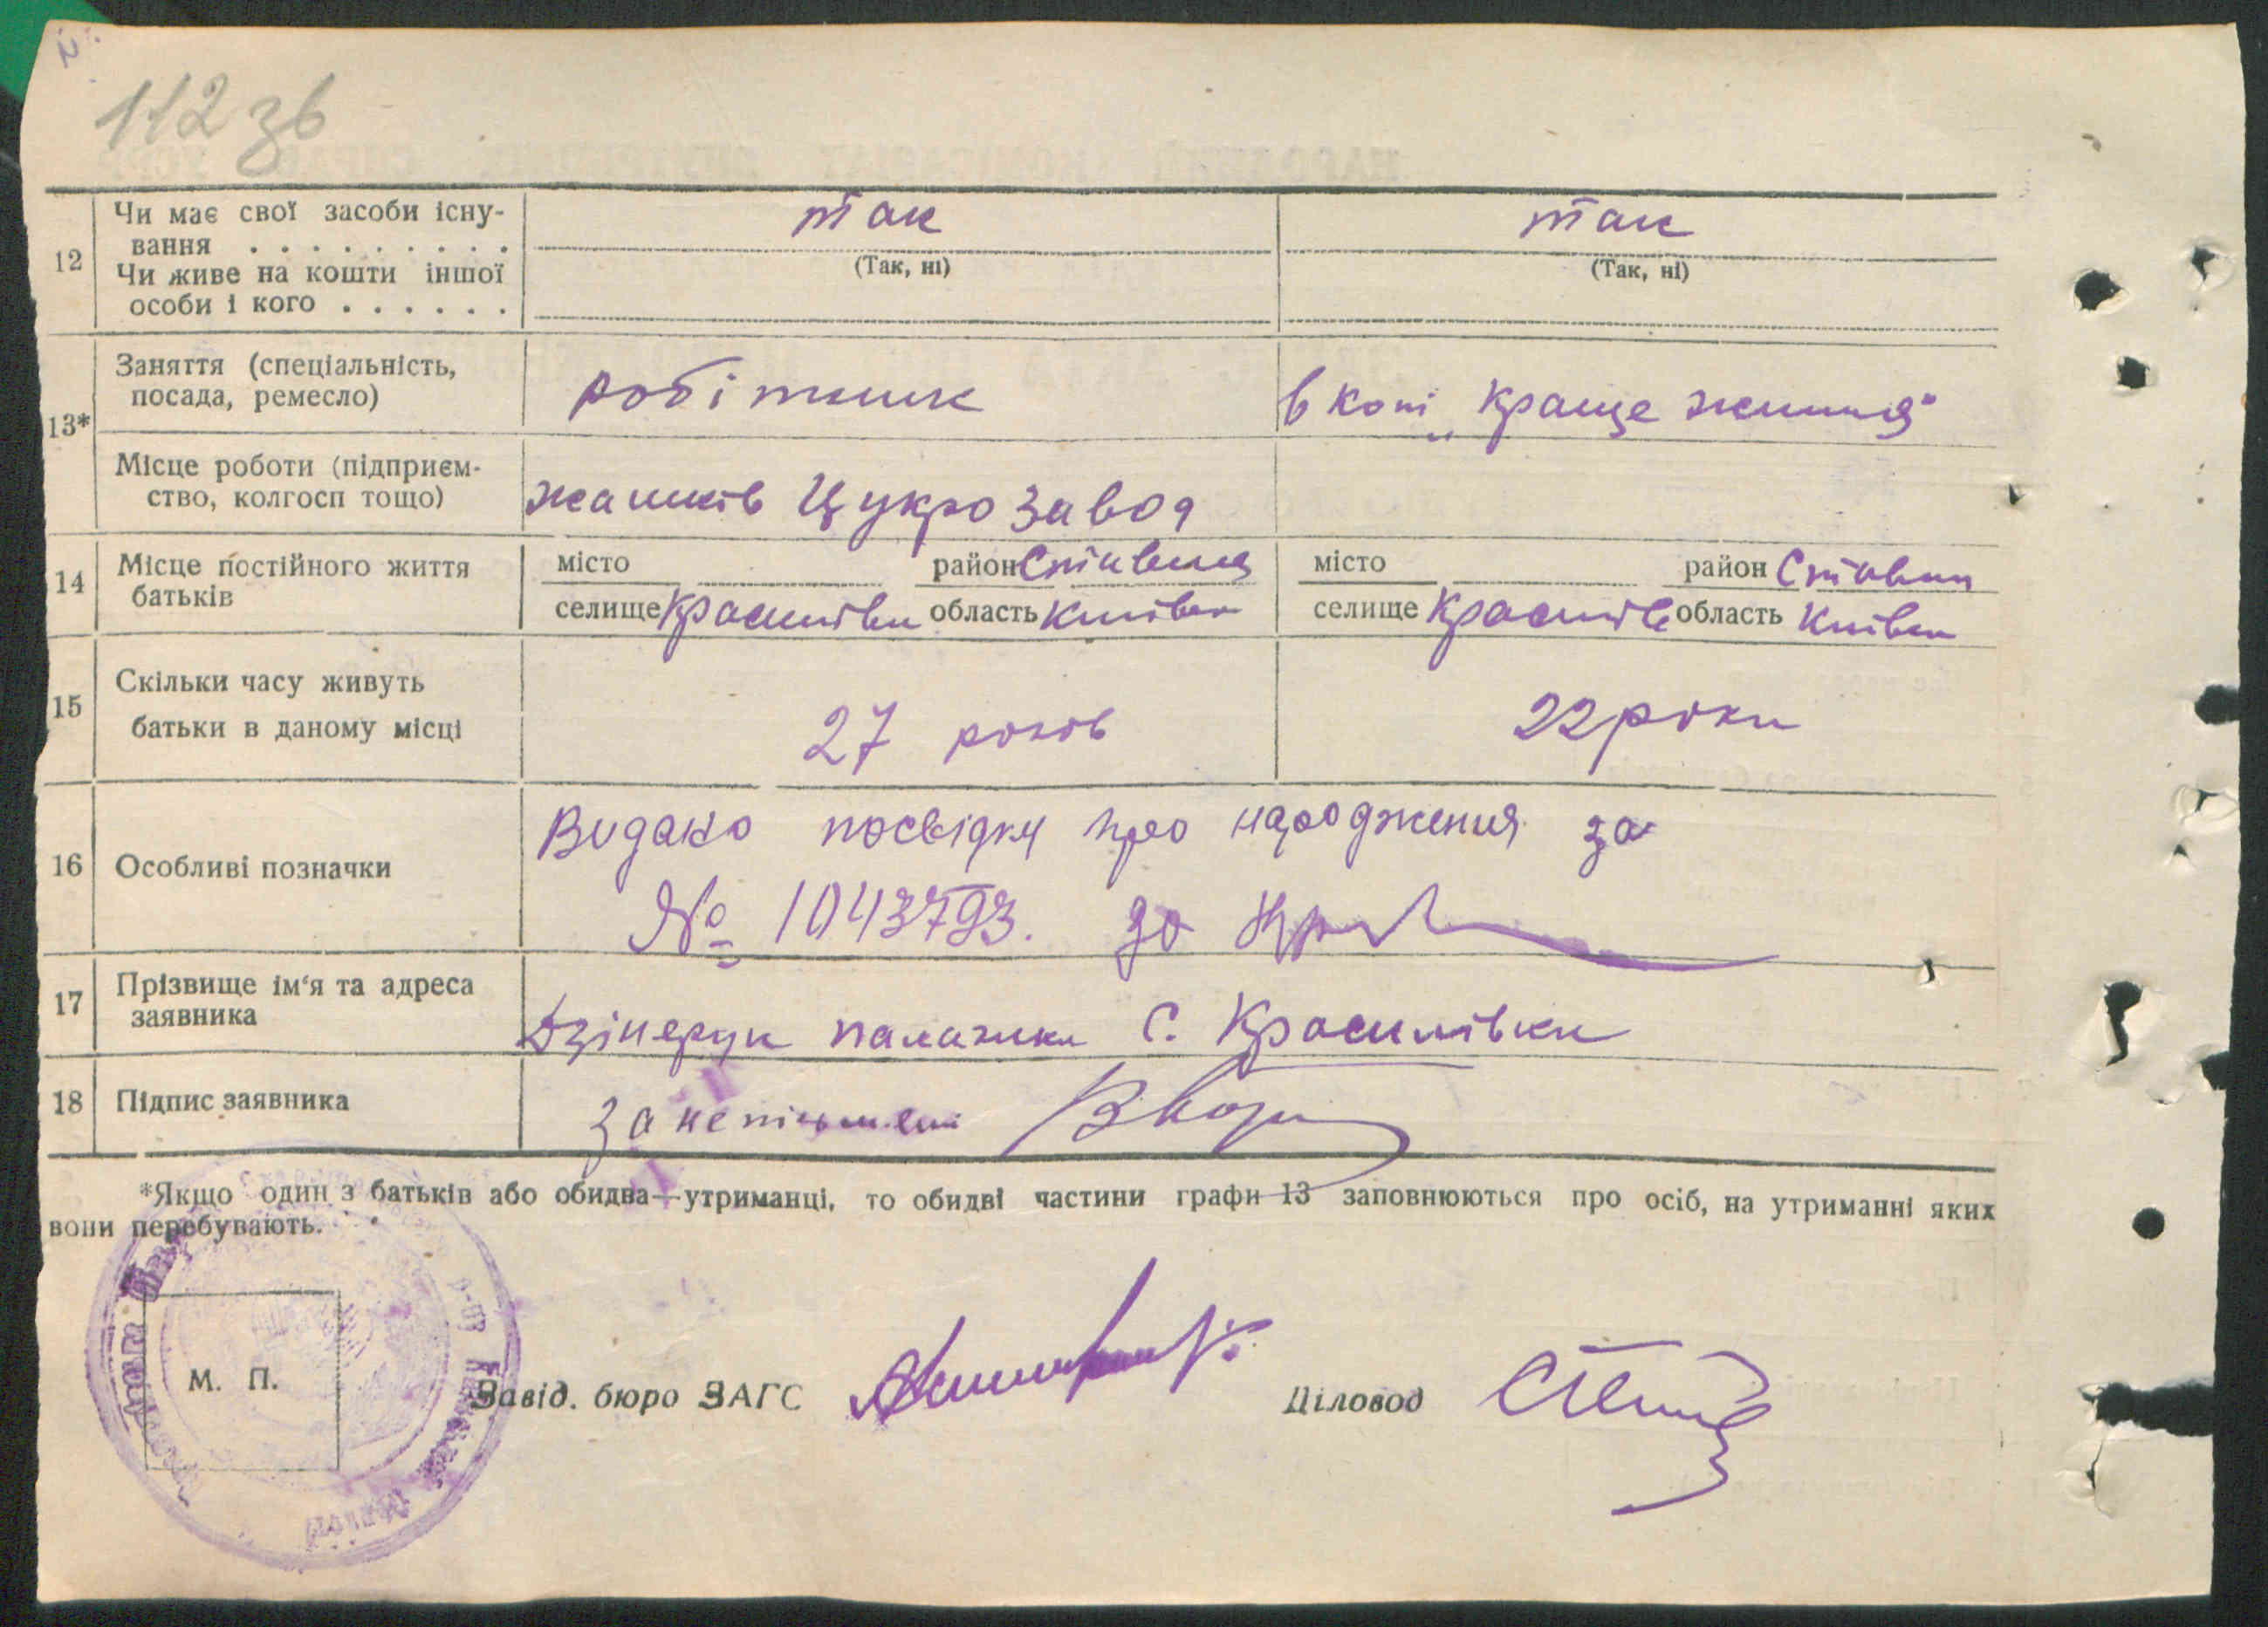 112 зв
12
Чи має свої засоби існу-
вання . . . . . . . . .
так
так
(Так, ні)
(Так, ні)
Чи живе на кошти іншої
особи і кого . . . . . .
13*
Заняття (спеціальність,
посада, ремесло)
робітник
в колі „Краще життя"
Місце роботи (підприєм-
ство, колгосп тощо)
Жашків Цукрозавод
14
Місце постійного життя
батьків
місто район Ставищ
місто район Ставищ
селище Красилівки область Київськ
селище Красилів область Київськ
15
Скільки часу живуть
батьки в даному місці
27 років
22 роки
16
Особливі позначки
Видано посвідку про народження за
№ 1043793. за
17
Прізвище ім'я та адреса
заявника
Дзінерук Палажка С. Красилівки
18
Підпис заявника
за неписьмен
*Якщо один з батьків або обидва—утриманці, то обидві частини графи 13 заповнюються про осіб, на утриманні яких
вони перебувають.
М. П.
Завід. бюро ЗАГС
Діловод